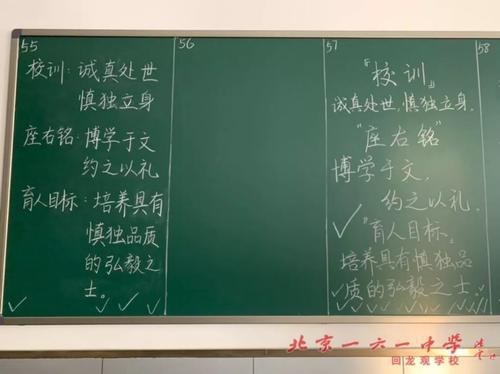 55
校训：诚真处世
慎独立身
座右铭：博学于文
约之以礼
育人目标：培养具有
慎独品质
的弘毅之
士。
56
57
『校训』
诚真处世，慎独立身。
“座右铭”
博学于文，
约之以礼。
『育人目标』
培养具有慎独品
质的弘毅之士。
58
北京一六一中学
回龙观学校